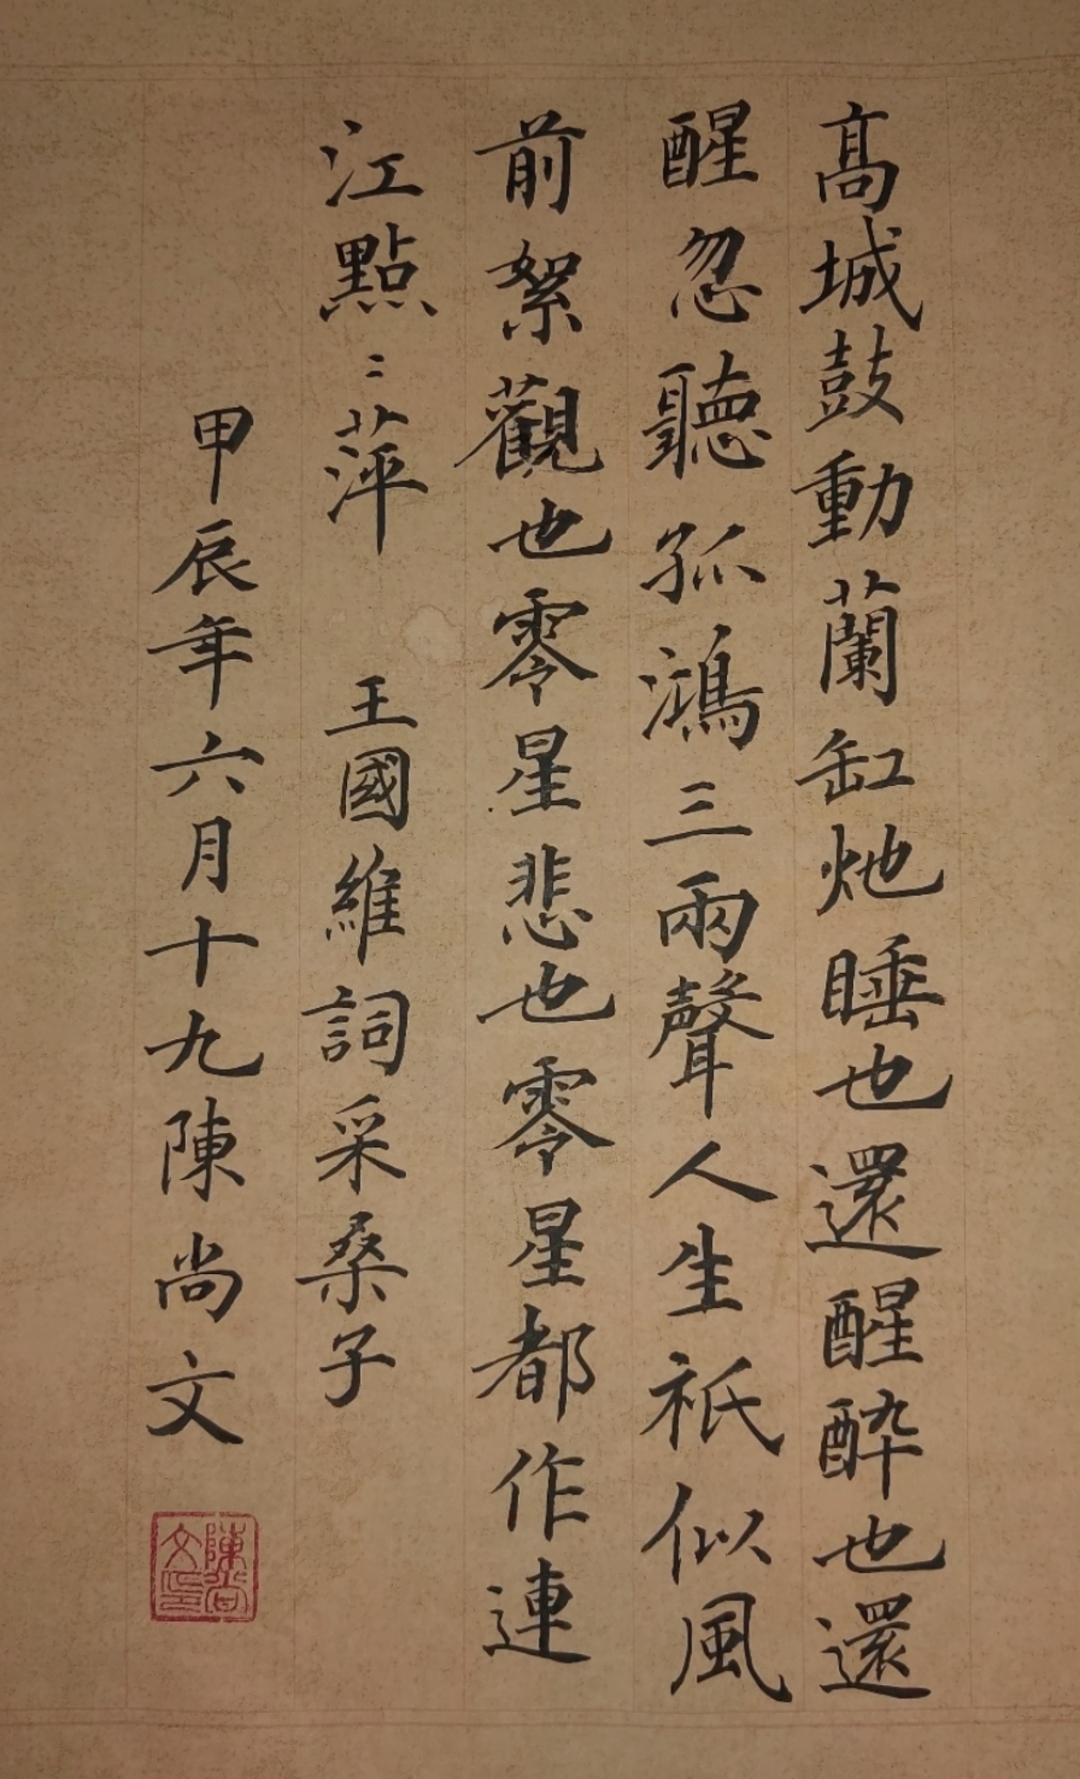 高城鼓動蘭缸灺睡也還醒醉也還
醒忽聽孤鴻三兩聲人生衹似風
前絮觀也零星悲也零星都作連
江點〻萍 王國維詞采桑子
甲辰年六月十九陳尚文
陳尚文印